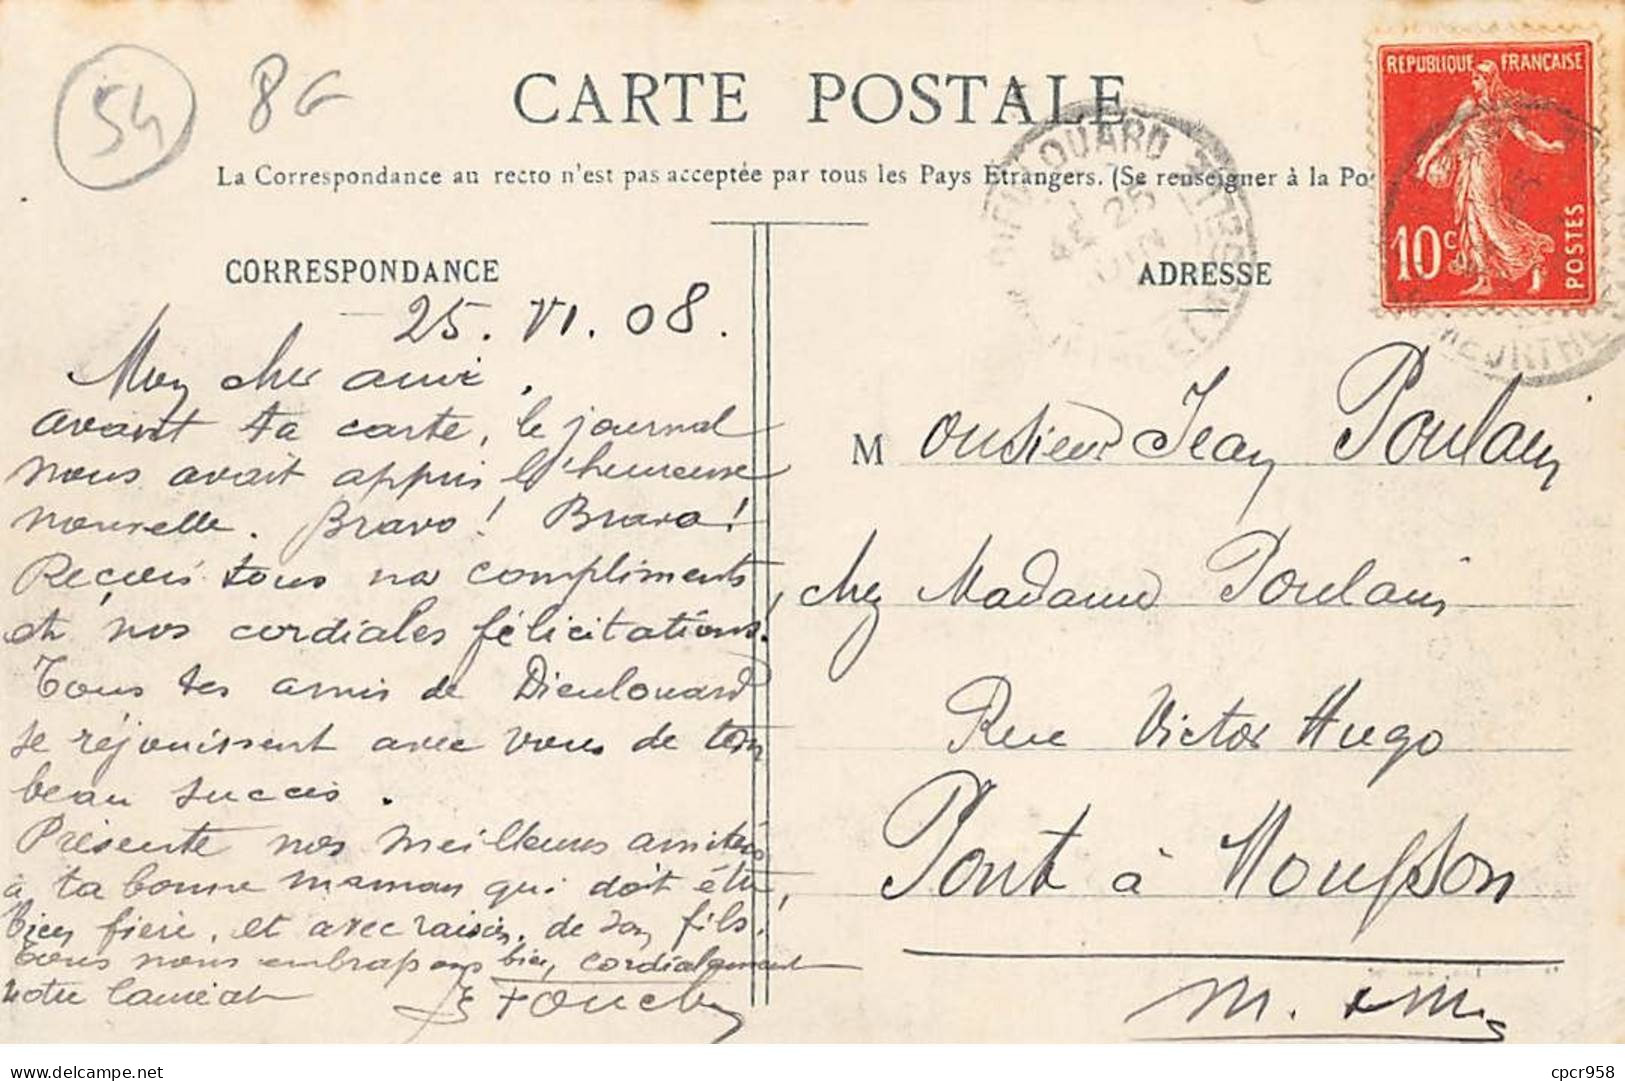 54 8G
CARTE POSTALE
La Correspondance au recto n'est pas acceptée par tous les Pays Etrangers. (Se renseigner à la Po
REPUBLIQUE FRANÇAISE
10c
POSTES
DIEULOUARD
25
MEURTHE
CORRESPONDANCE
25. VI. 08.
Mon cher ami,
avant ta carte, le journal
nous avait appris l'heureuse
nouvelle. Bravo! Bravo!
Reçois tous nos compliments
et nos cordiales félicitations!
Tous tes amis de Dieulouard
se réjouissent avec vous de ton
beau succès.
Présente nos meilleurs amitiés
à ta bonne maman qui doit être,
bien fière, et avec raison, de son fils!
Tous nous embrassons bien cordialement
notre lauréat
ADRESSE
Monsieur Jean Poulain
chez Madame Poulain
Rue Victor Hugo
Pont à Mousson
M. & M.
cpcr958